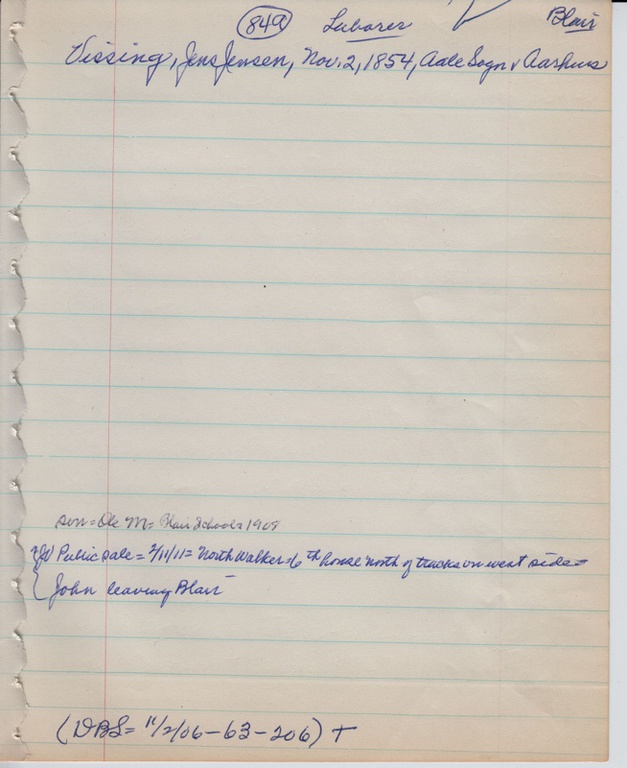 849 Laborer Blair
Vissing, Jens Jensen, Nov. 2, 1854, Aale Sogn v Aarhus
son = Ole M = Blair Schools 1908
Public sale = 2/11/11 = North Walker = 6th house north of tracks on west side =
John leaving Blair
(DBS = 11/2/06 - 63 - 206) +